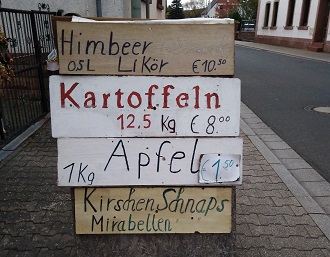 Himbeer
0SL Likör €10.50
Kartoffeln
12.5 kg €8.00
1Kg Äpfel €1.50
Kirschen Schnaps
Mirabellen